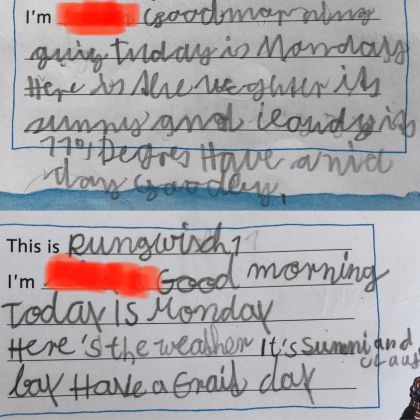 I'm Goodmorning
guig tuday is Monday
Here is the weghter its
sunny and cloudy its
77°, Degres Have a nid
day Goodbey.
This is Rungwisch 1
I'm Good morning
Today IS Monday
Here's the weather It's Sunni and
day Have a Grait day